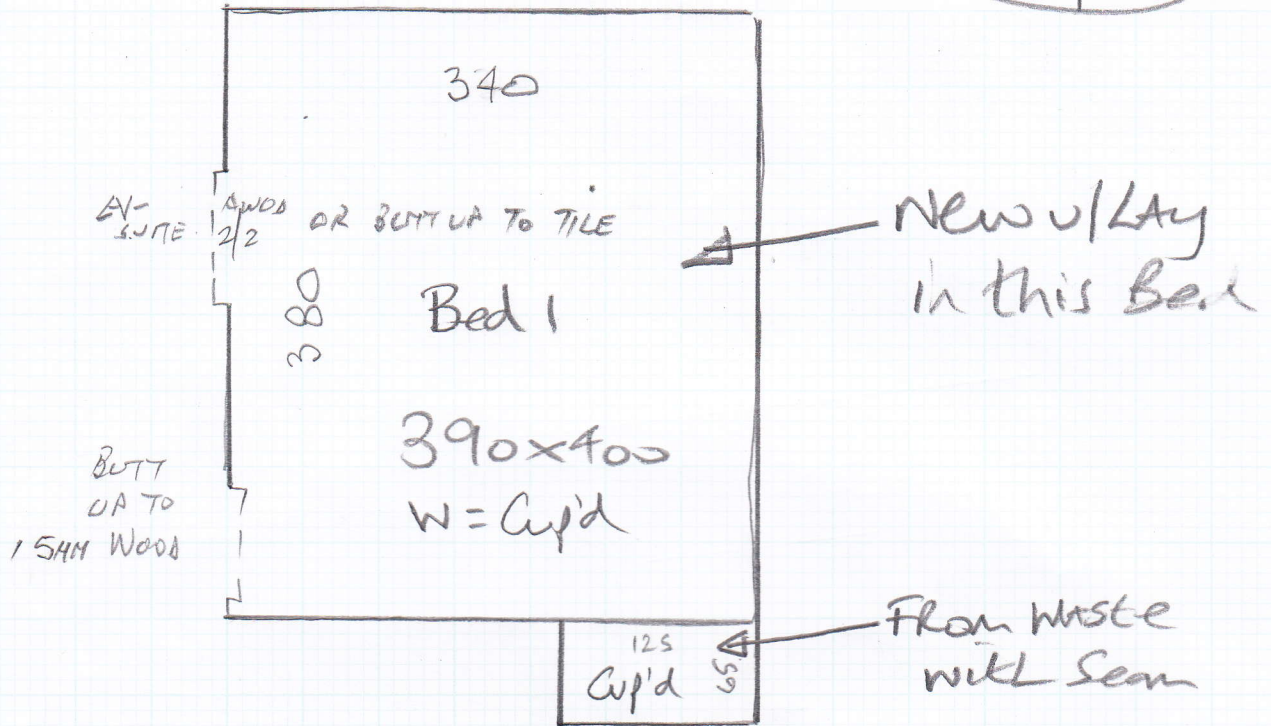 340
EN-
SUITE
2/2 OR BUTT UP TO TILE
New U/LAY
in this Bed
380
Bed 1
390x400
W = Cup'd
BUTT
UP TO
15MM WOOD
125
Cup'd 65
FROM WASTE
with Seam